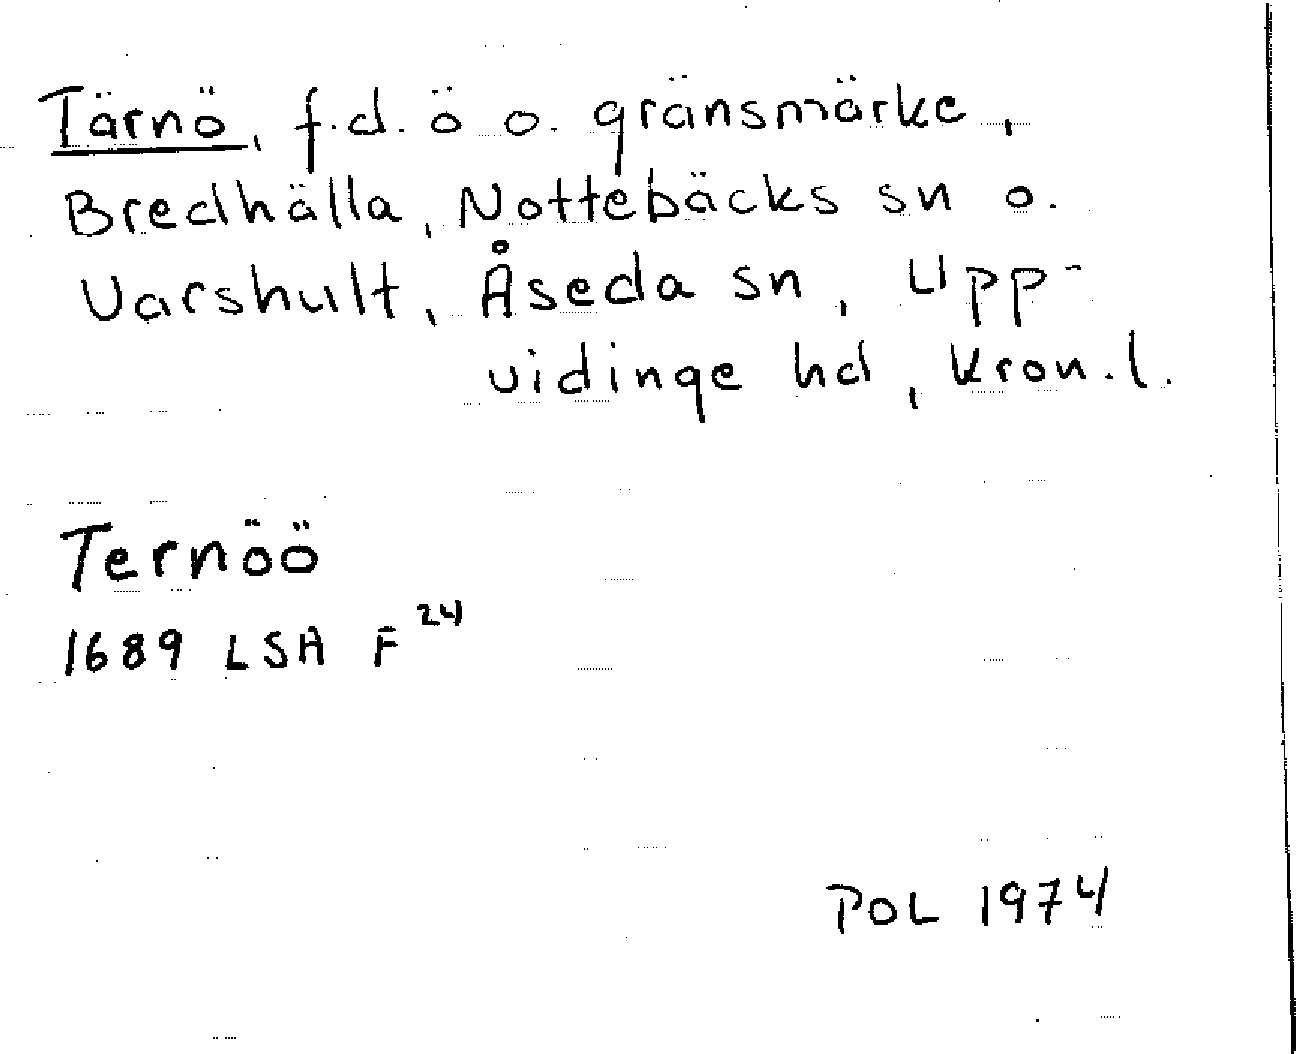 Tärnö, f.d. ö o. gränsmärke,
Bredhälla, Nottebäcks sn o.
Varshult, Åseda sn, Upp-
vidinge hd, Kron.l.
Ternöö
1689 LSA F 24
POL 1974